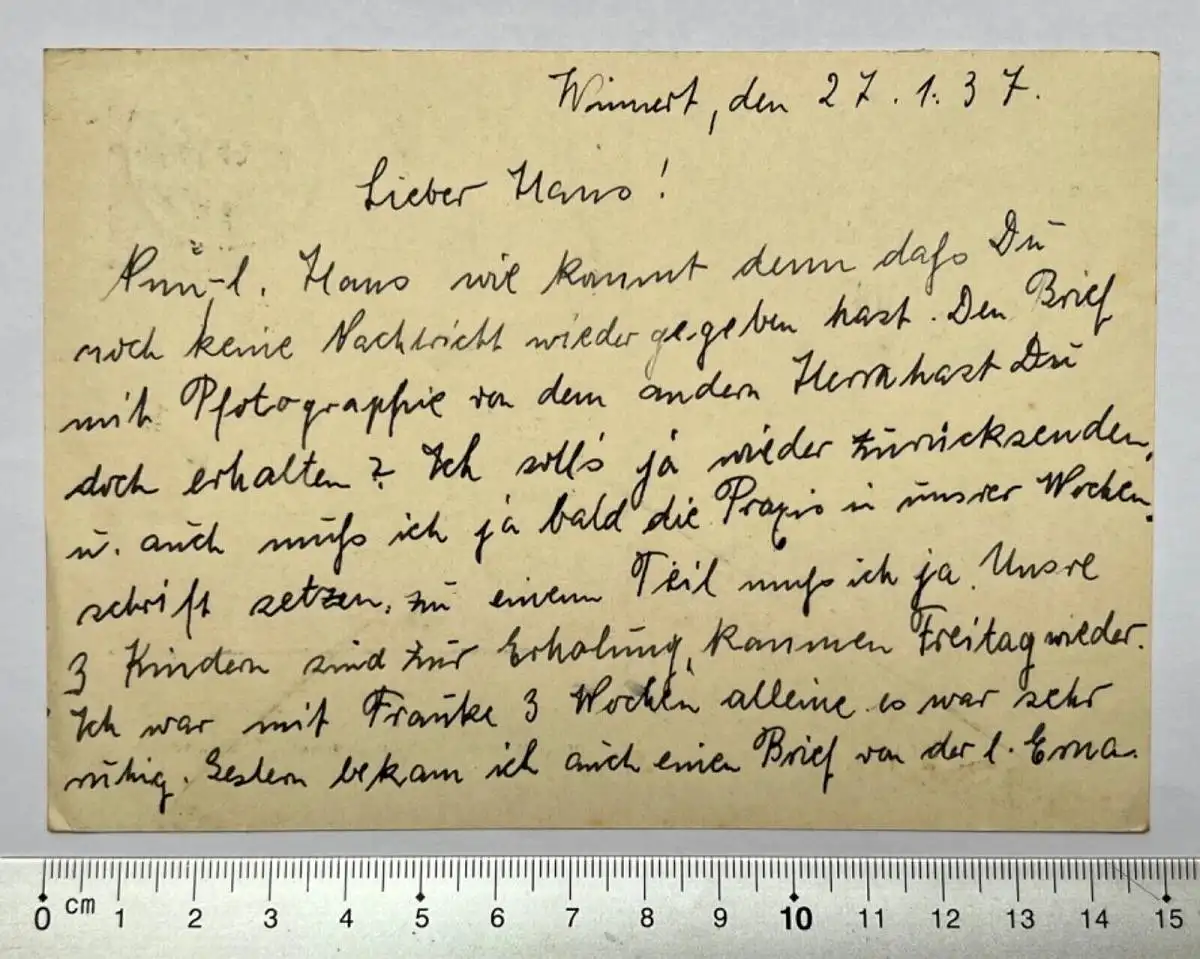 Winnert, den 27.1.37.
Lieber Hans!
Nun l. Hans wie kommt denn dass Du
noch keine Nachtricht wieder gegeben hast. Den Brief
mit Pfotographie von dem andern Herrn hast Du
doch erhalten? Ich solls ja wieder zurücksenden,
u. auch muss ich ja bald die Praxis in unsrer Wochen-
schrift setzen, zu einem Teil muss ich ja. Unsre
3 Kindern sind zur Erholung, kommen Freitag wieder.
Ich war mit Frauke 3 Wochen alleine es war sehr
ruhig. Gestern bekam ich auch einen Brief von der l. Erna.
0 cm 1 2 3 4 5 6 7 8 9 10 11 12 13 14 15